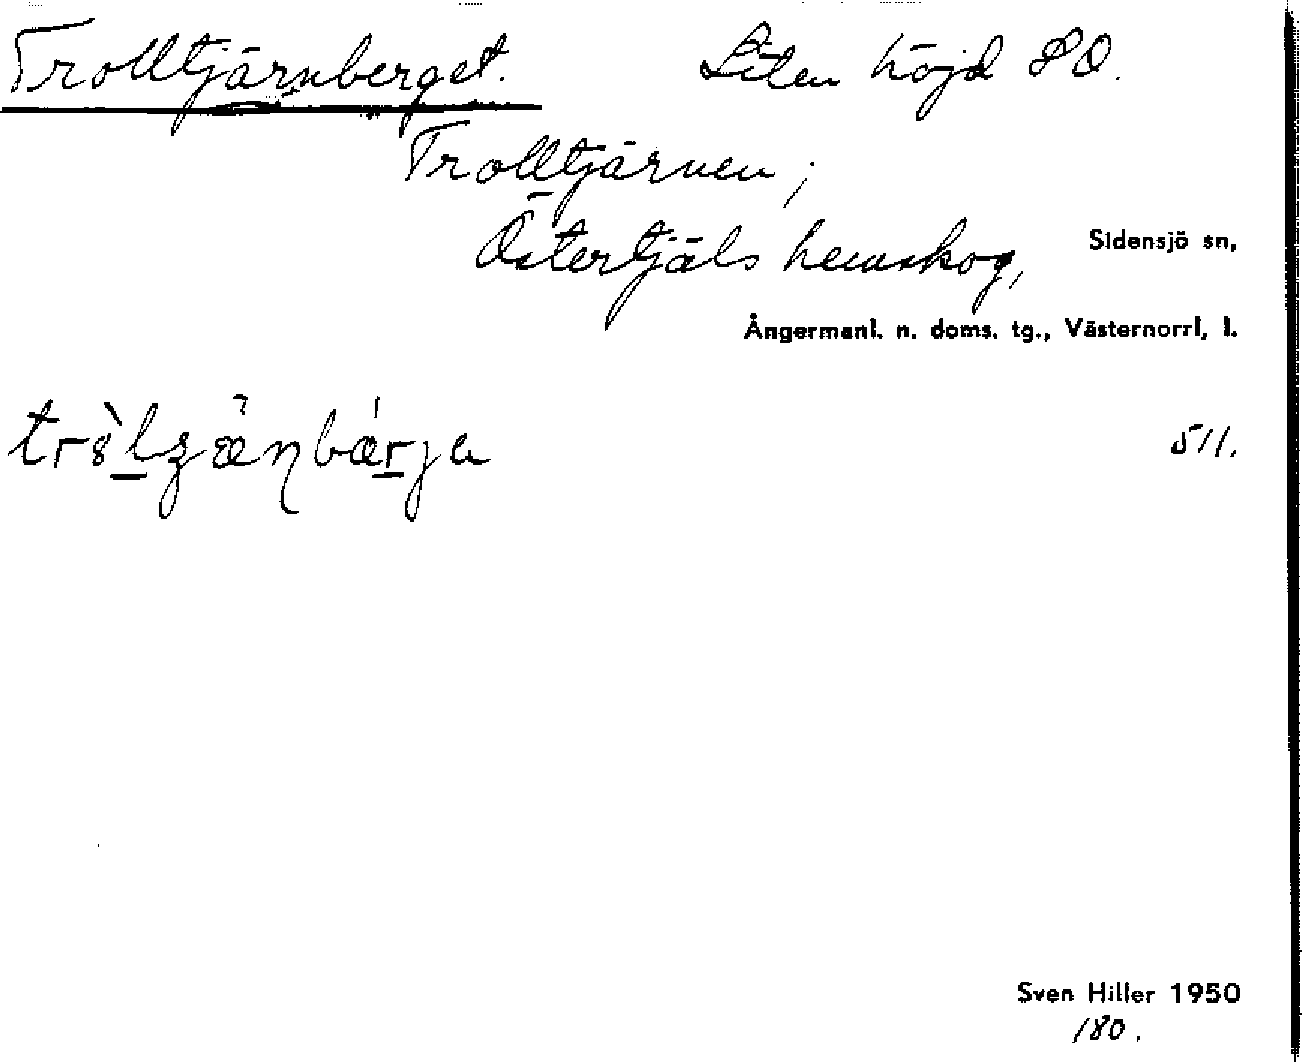 Trolltjärnberget. Liten höjd SO.
Trolltjärnen;
Östertjäls hemskog, Sidensjö sn,
Ångermanl. n. doms. tg., Västernorrl, l.
511.
Sven Hiller 1950
180.